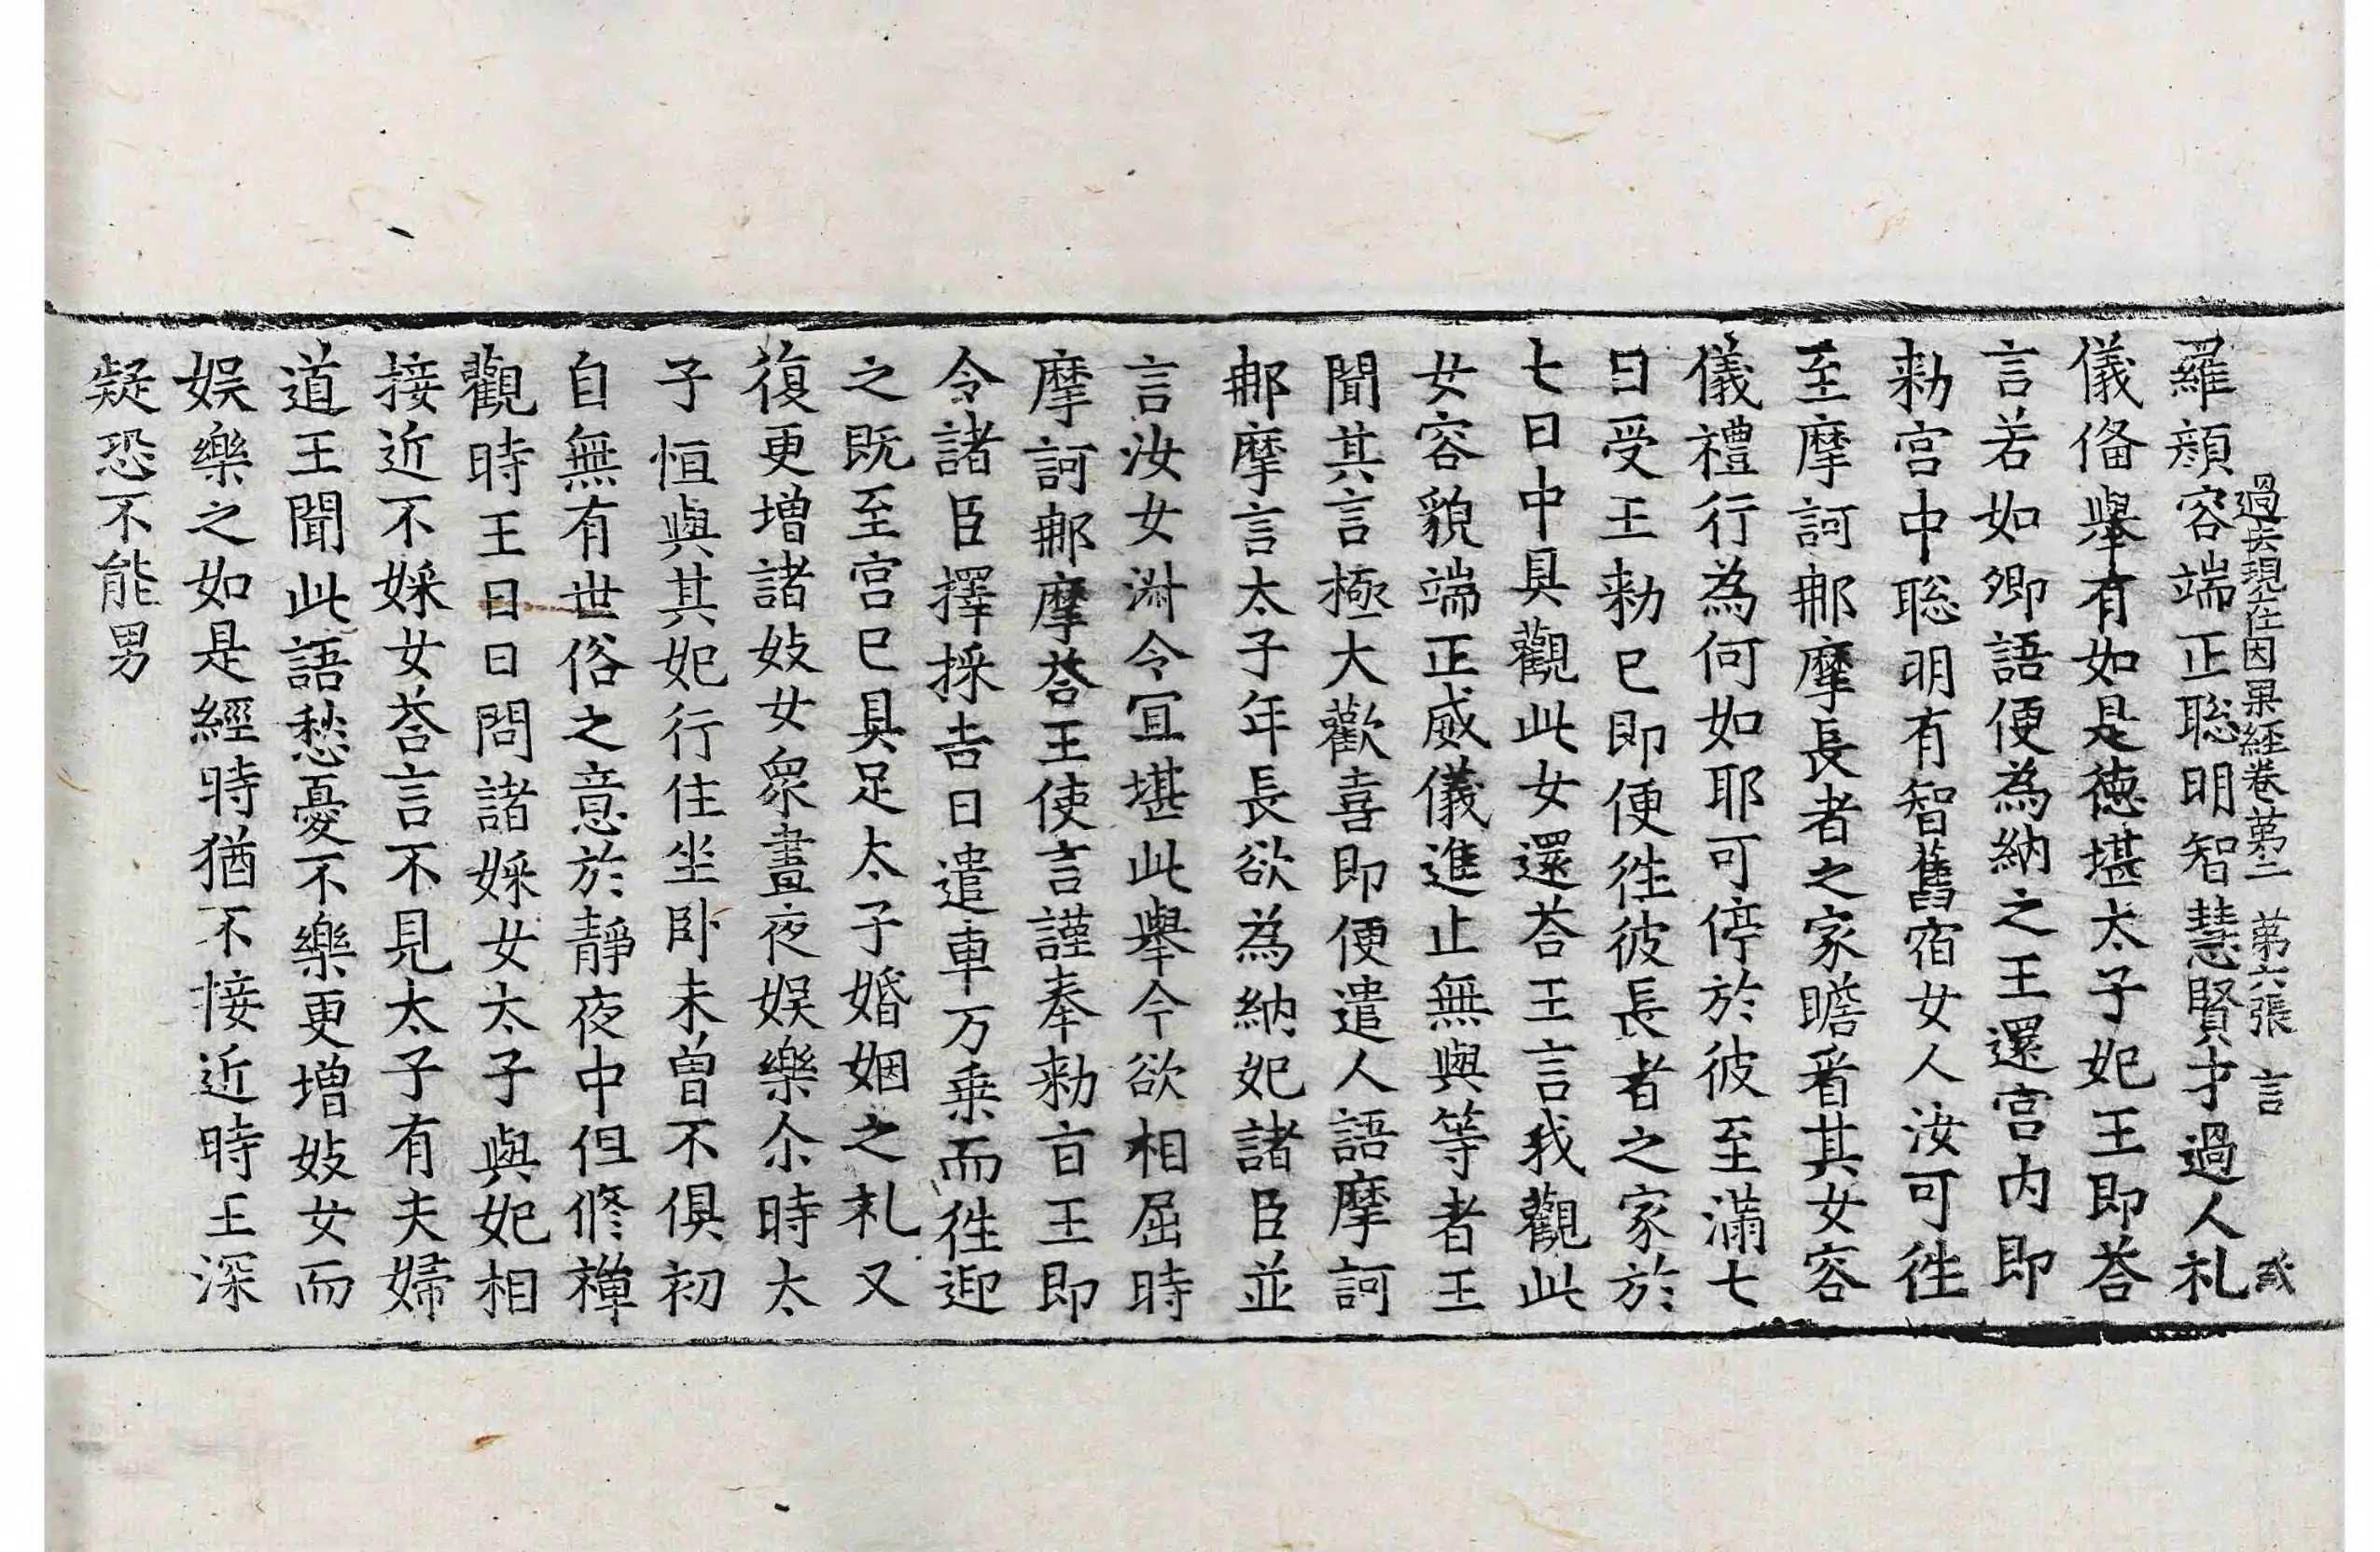 過去現在因果經卷第二　第六張　言
羅顔容端正聡明智慧賢才過人礼
儀俻舉有如是德堪太子妃王即荅
言若如卿語便為納之王還宫内即
勑宫中聡明有智舊宿女人汝可徃
至摩訶那摩長者之家瞻看其女容
儀禮行為何如耶可停於彼至滿七
日受王勑已即便徃彼長者之家於
七日中具觀此女還荅王言我觀此
女容貌端正威儀進止無與等者王
聞其言極大歡喜即便遣人語摩訶
那摩言太子年長欲為納妃諸臣並
言汝女淑令宜堪此舉今欲相屈時
摩訶那摩荅王使言謹奉勑旨王即
令諸臣擇採吉日遣車万乗而徃迎
之既至宫已具足太子婚姻之礼又
復更增諸妓女衆晝夜娱樂尒時太
子恒與其妃行住坐卧未曽不俱初
自無有世俗之意於静夜中但修禅
觀時王日日問諸婇女太子與妃相
接近不婇女荅言不見太子有夫婦
道王聞此語愁憂不樂更增妓女而
娱樂之如是經時猶不接近時王深
疑恐不能男